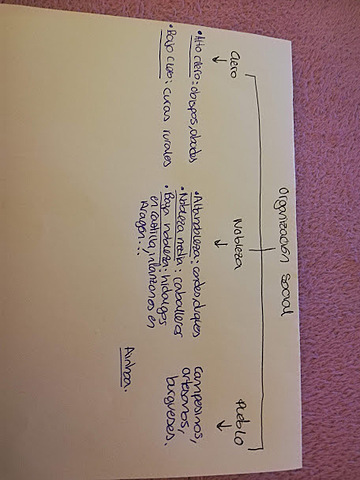 Organización social
Clero
• Alto clero: obispos, abades
• Bajo clero: curas rurales
Nobleza
• Alta nobleza: condes, duques
• Nobleza media: caballeros
• Baja nobleza: hidalgos
en castilla, infanzones en
Aragón...
Pueblo
campesinos,
artesanos,
burgueses.
Ainhoa.